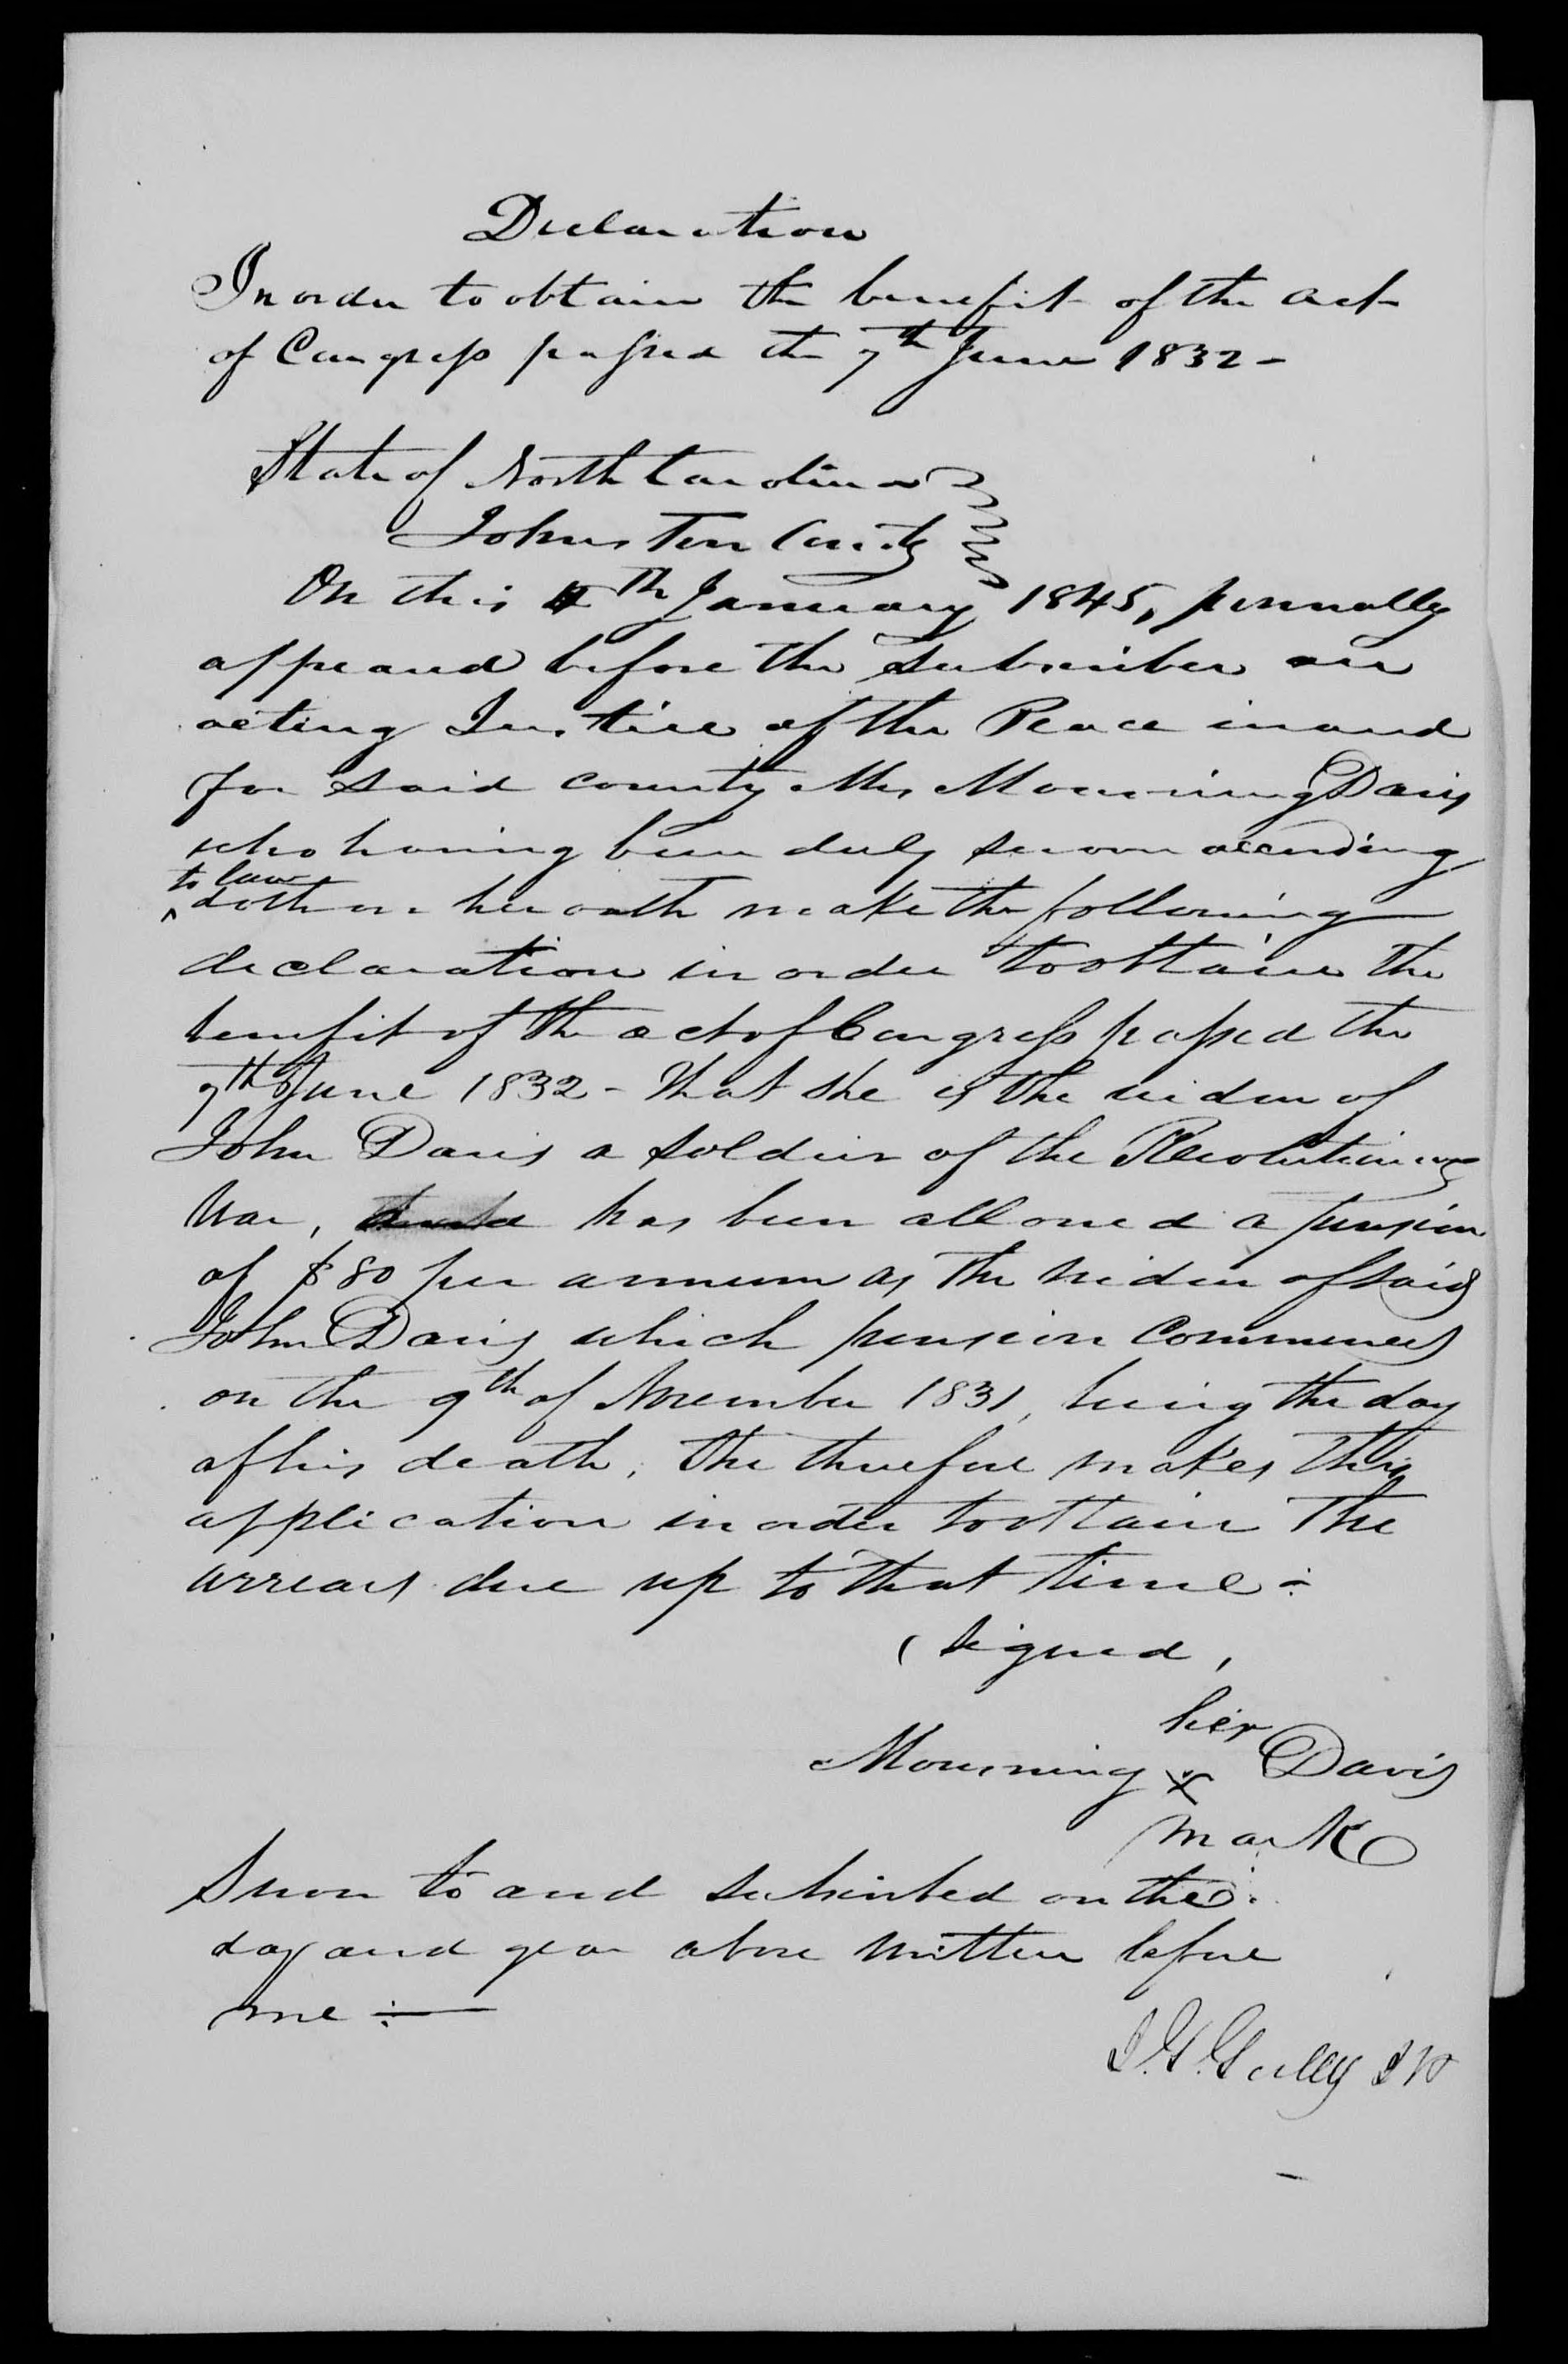 Declaration
In order to obtain the benefit of the act
of Congress passed the 7th June 1832 -
State of North Carolina
Johnston County
On this 4th January 1845, personally
appeared before the subscriber an
acting Justice of the Peace in and
for said county Mrs Mourning Davis
who having been duly sworn according
to law
doth on her oath make the following
declaration in order to obtain the
benefit of the act of Congress passed the
7th June 1832 - that she is the widow of
John Davis a soldier of the Revolutionary
War, has been allowed a pension
of $80 per annum as the widow of said
John Davis which pension commenced
on the 9th of November 1831, being the day
of his death, She therefore makes this
application in order to obtain the
arrears due up to that time -
(signed,
her
Mourning x Davis
mark
Sworn to and subscribed on the
day and year above written before
me
J. G. Gulley J P